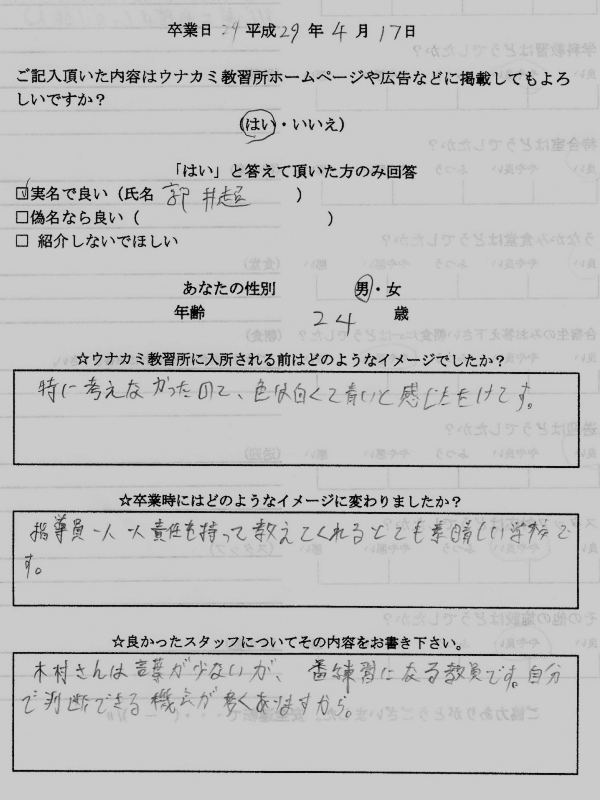 卒業日 29 平成29年4月17日
ご記入頂いた内容はウナカミ教習所ホームページや広告などに掲載してもよろ
しいですか?
(はい・いいえ)
「はい」と答えて頂いた方のみ回答
☑実名で良い(氏名 郭 井超 )
□偽名なら良い( )
□ 紹介しないでほしい
あなたの性別 男・女
年齢 24 歳
☆ウナカミ教習所に入所される前はどのようなイメージでしたか?
特に考えなかったので、色は白くて青いと感じただけです。
☆卒業時にはどのようなイメージに変わりましたか?
指導員一人一人責任を持って教えてくれるとても素晴しい学校で
す。
☆良かったスタッフについてその内容をお書き下さい。
木村さんは言葉が少ないが、一番練習になる教員です。自分
で判断できる機会が多くありますから。